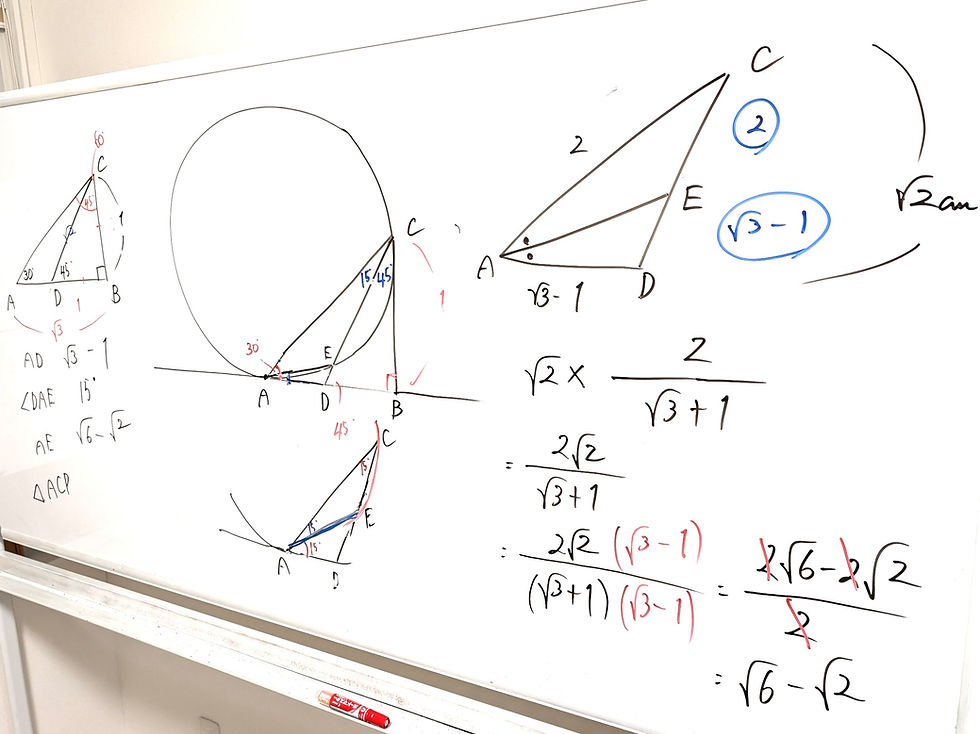 60°
C
45°
1
√2
30°
45°
A
D
B
1
√3
AD √3 - 1
∠DAE 15°
AE √6 - √2
△ACP
C
15°
45°
1
30°
E
A
D
B
45°
C
15°
15°
E
15°
A
D
C
2
2
E
√3 - 1
√2cm
A
√3 - 1
D
√2 × 2/(√3 + 1)
= 2√2/(√3 + 1)
= 2√2(√3 - 1)/((√3 + 1)(√3 - 1)) = (2√6 - 2√2)/2
= √6 - √2